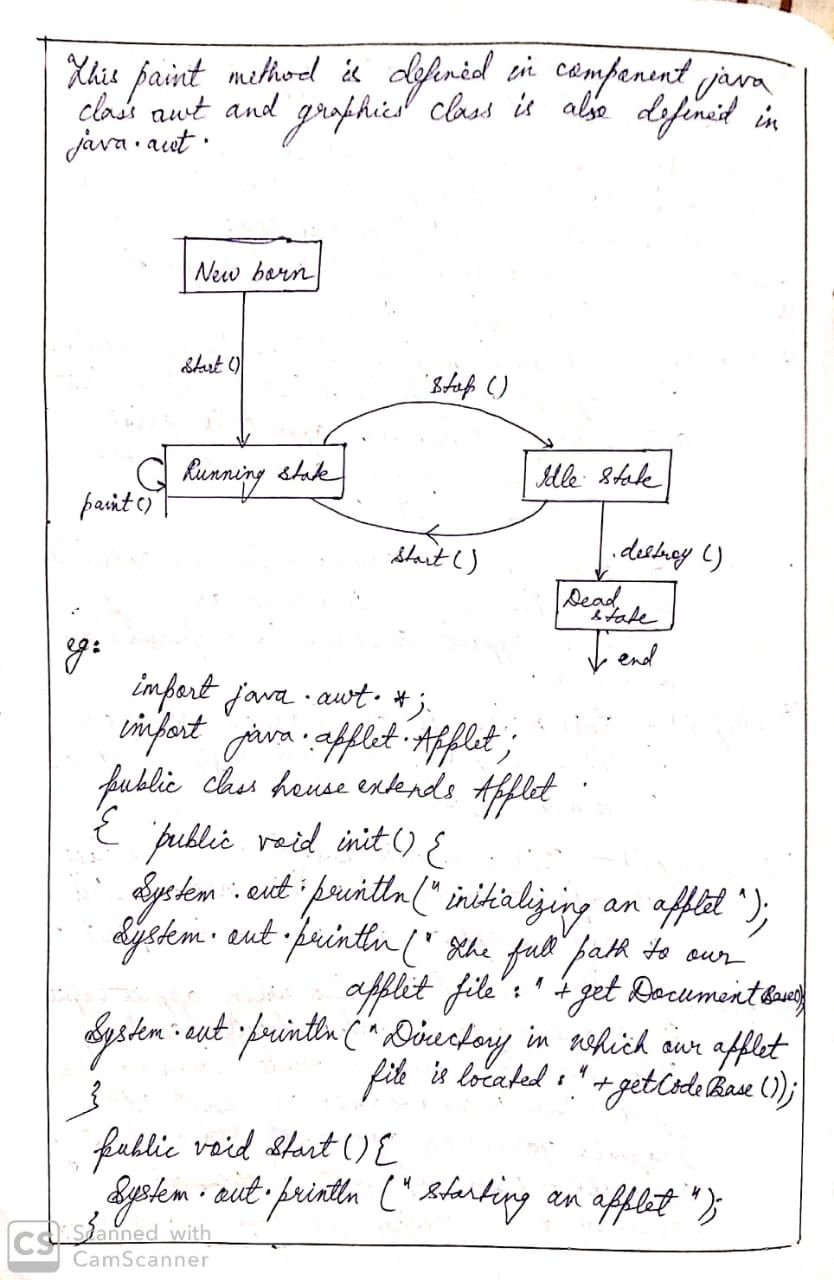 This paint method is defined in companent java
class awt and graphics class is also defined in
java.awt.
New born
Start ()
Stop ()
Running state
Idle State
paint ()
Start ()
destroy ()
Dead
state
end
eg:
import java.awt.*;
import java.applet.Applet;
public class house extends Applet
{ public void init () {
System.out.println("initializing an applet");
System.out.println("The full path to our
applet file :" + get Document Base());
System.out.println("Directory in which our applet
file is located :" + getCodeBase ());
}
public void start () {
System.out.println ("starting an applet");
}
CS Scanned with
CamScanner